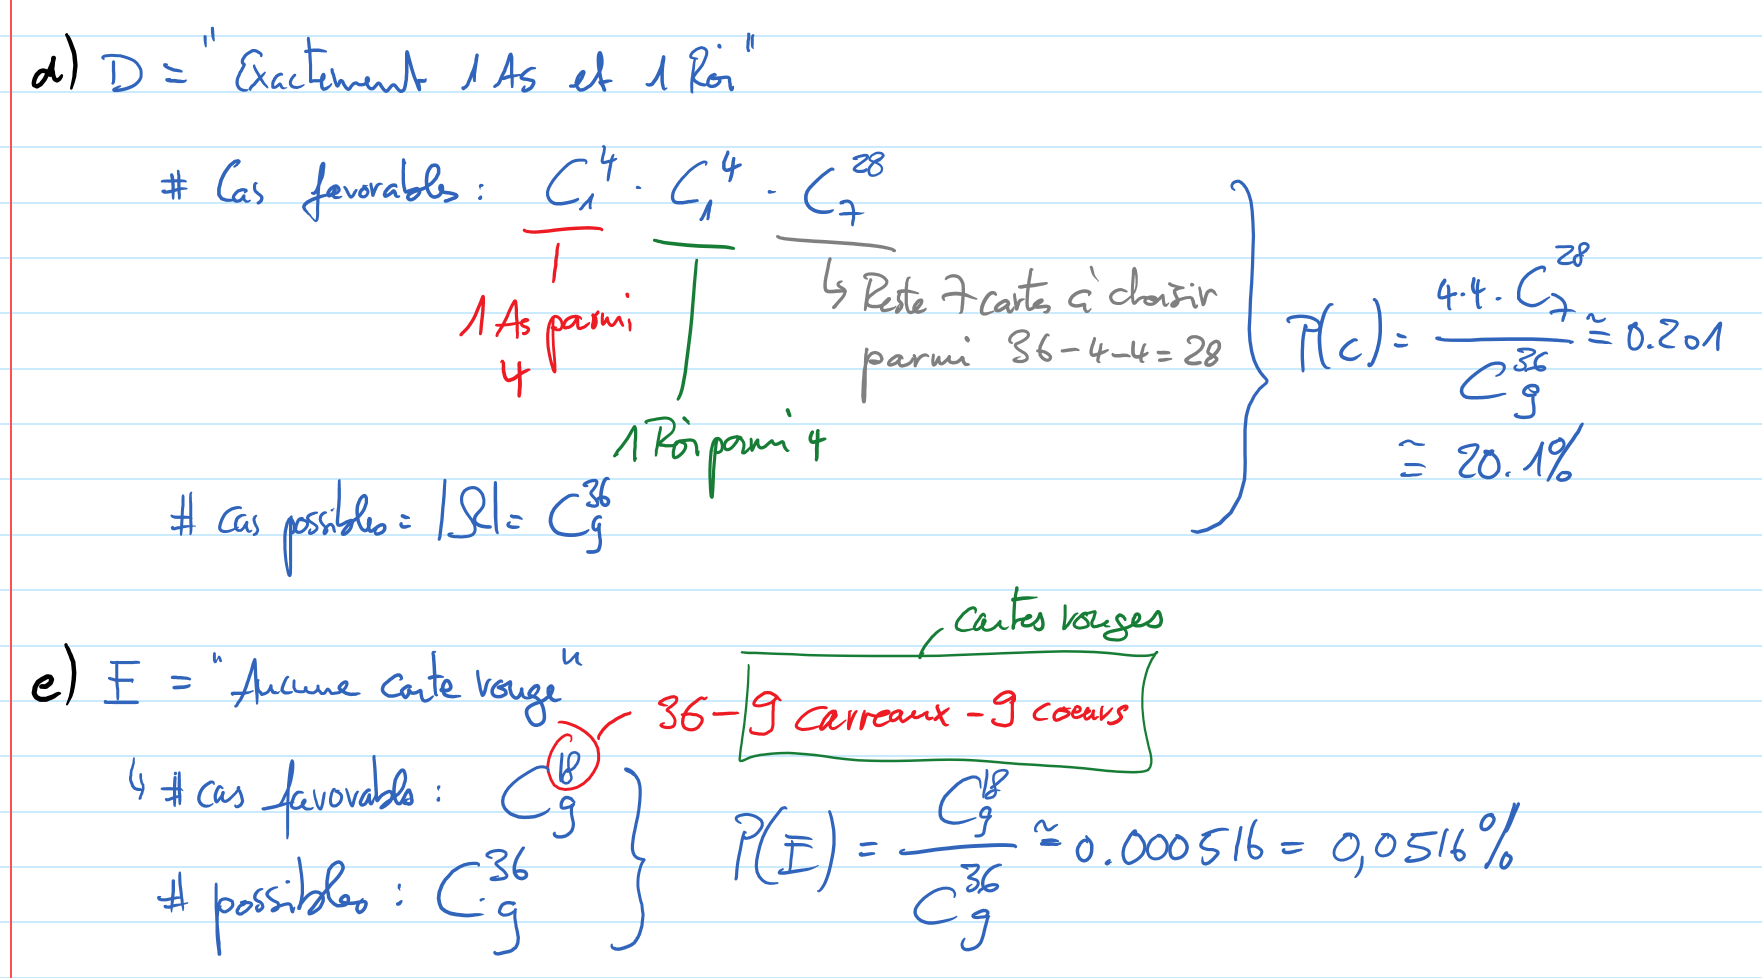 d) D = "Exactement 1 As et 1 Roi"
# Cas favorables : C₁⁴ · C₁⁴ · C₇²⁸
1 As parmi
4
1 Roi parmi 4
↳ Reste 7 cartes à choisir
parmi 36-4-4 = 28
# cas possibles = |Ω| = C₉³⁶
P(c) = 4·4·C₇²⁸ / C₉³⁶ ≅ 0.201
≅ 20.1%
cartes rouges
e) E = "Aucune carte rouge"
36 - 9 carreaux - 9 coeurs
↳ # cas favorables : C₉¹⁸
# possibles : C₉³⁶
P(E) = C₉¹⁸ / C₉³⁶ ≅ 0.000516 = 0,0516%